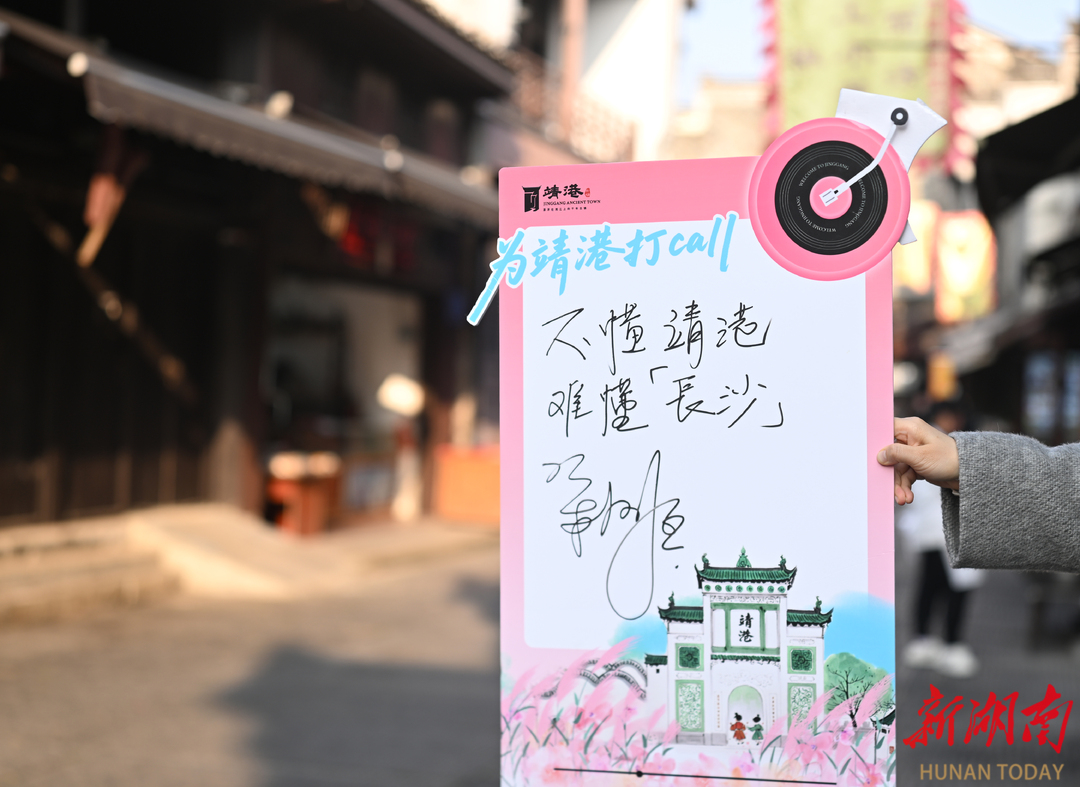 靖港
JINGGANG ANCIENT TOWN
WELCOME TO JINGGANG
WELCOME TO JINGGANG
WELCOME TO JINGGANG
为靖港打call
不懂靖港
难懂「長沙」
靖港
新湖南
HUNAN TODAY